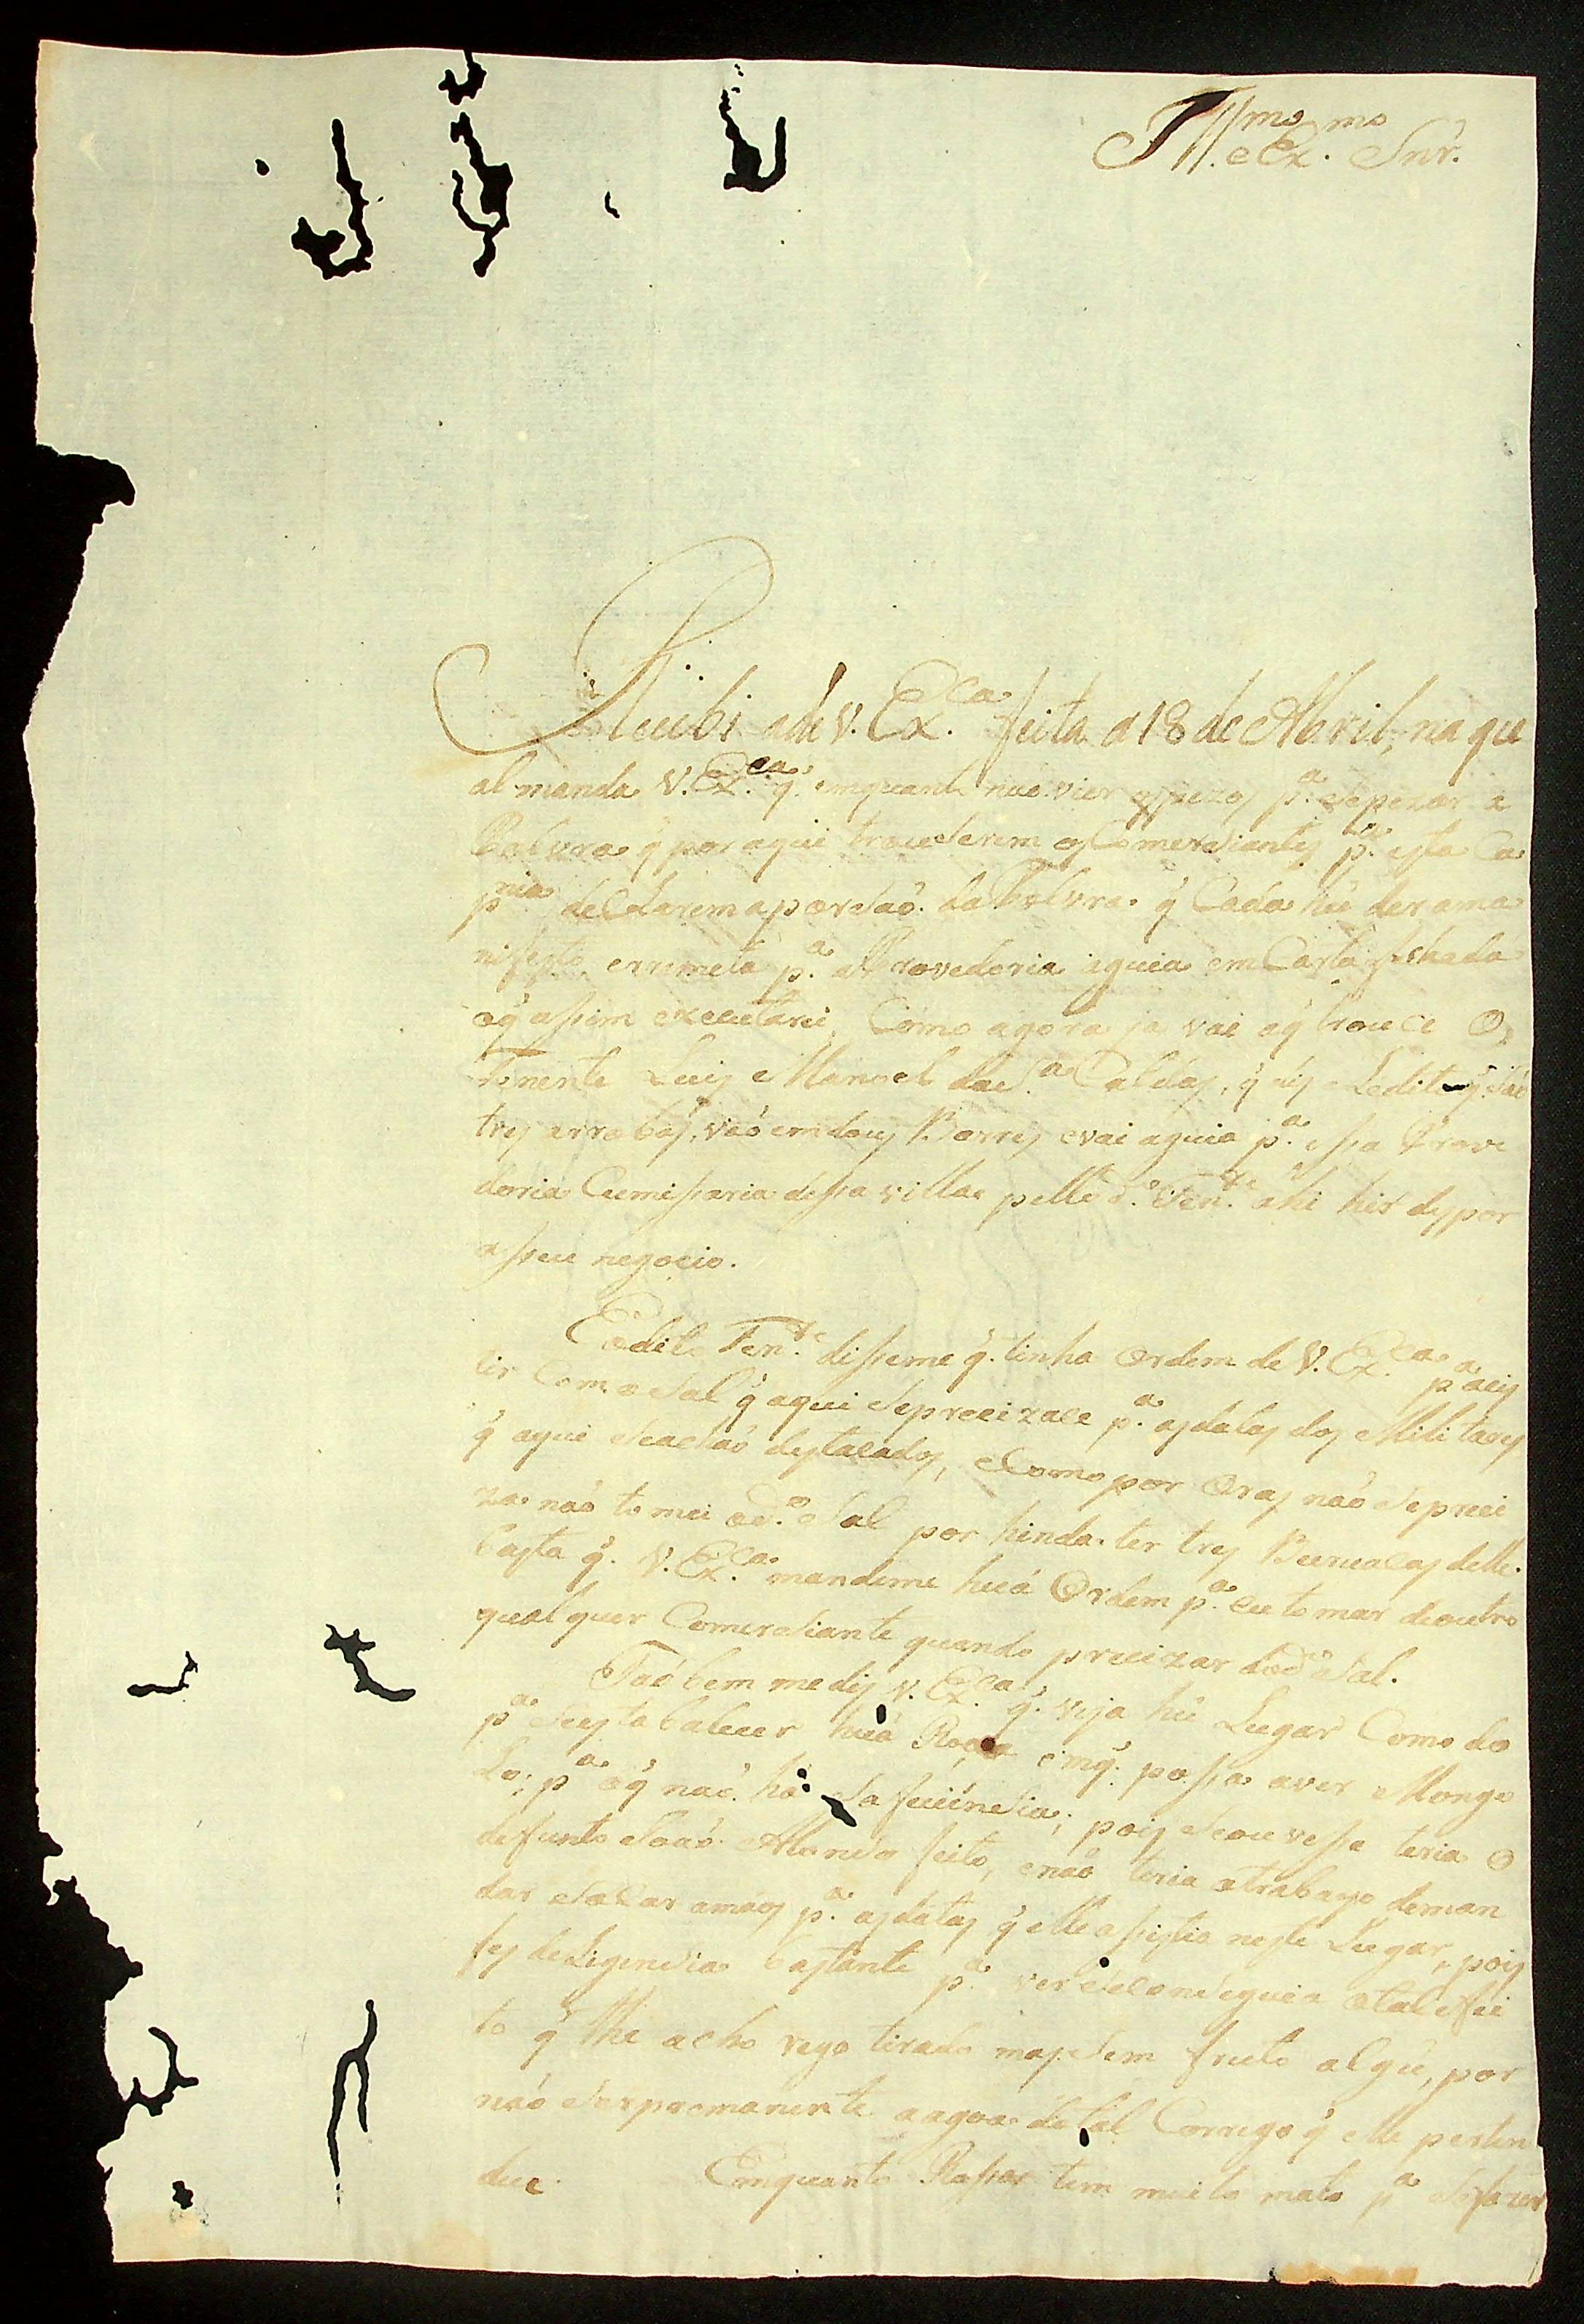 Ill.mo e Ex.mo Snr.
Recebi a de V. Ex.ca feita a 18 de Abril, na qu
al manda V. Ex.ca q̃. emquanto nao vier os pezos p.a se pezar a
Polvra q̃ por aqui trouserem os Comersiantes p.a esta Ca
p.nia deClarem a porsaõ. da Polvra. q̃ Cada hũ der ama
nifesto, erremeta p.a a Provedoria aguia em Carta feshada
oq̃ assim executarei, Como agora ja vai oq̃ trouce O,
tenente Luis Manoel da S.a Caldas, q̃ dis
tres arrobas, vaõ em dous Barris evai aguia p.a essa Prove
doria Cumisaria desa villa, pello d.o Ten.te ahi hir dispor
asseu negocio.
Eodito Ten.te disseme q̃. tinha Ordem de V. Ex.ca p.a acis
tir Com o Sal q̃ aqui seprecizace p.a asdatas dos Militares
q̃ aqui seachaõ destacados, eComo por Oras naõ Sepreci
za naõ tomei od.o Sal por hinda. ter tres Bruacas delle.
basta q̃. V. Ex.ca mandeme huã Ordem p.a eu tomar deoutro
qualquer Comersiante quando precizar dod.o Sal.
Taõbem me dis V. Ex.ca q̃. veja hũ Lugar Como do
p.a seestabalecer huã Roça emq̃. possa aver Monjo
Lo; p.a oq̃ naõ. ha Safuciensia; pois seouvesse teria O
defunto Joaõ. feito, enaõ teria otrabayo deman
dar Socar amaõs p.a asdatas q̃ elle assistio neste Lugar, pois
fes deLigensia bastante p.a ver seConseguia otal efei
to q̃ lhe acho rego tirado mas. Sem fruto algũ, por
naõ Serpromanente aagoa. detal Corrego q̃ elle perten
deu. Emquanto Rassar tem muito mato p.a Sefazer